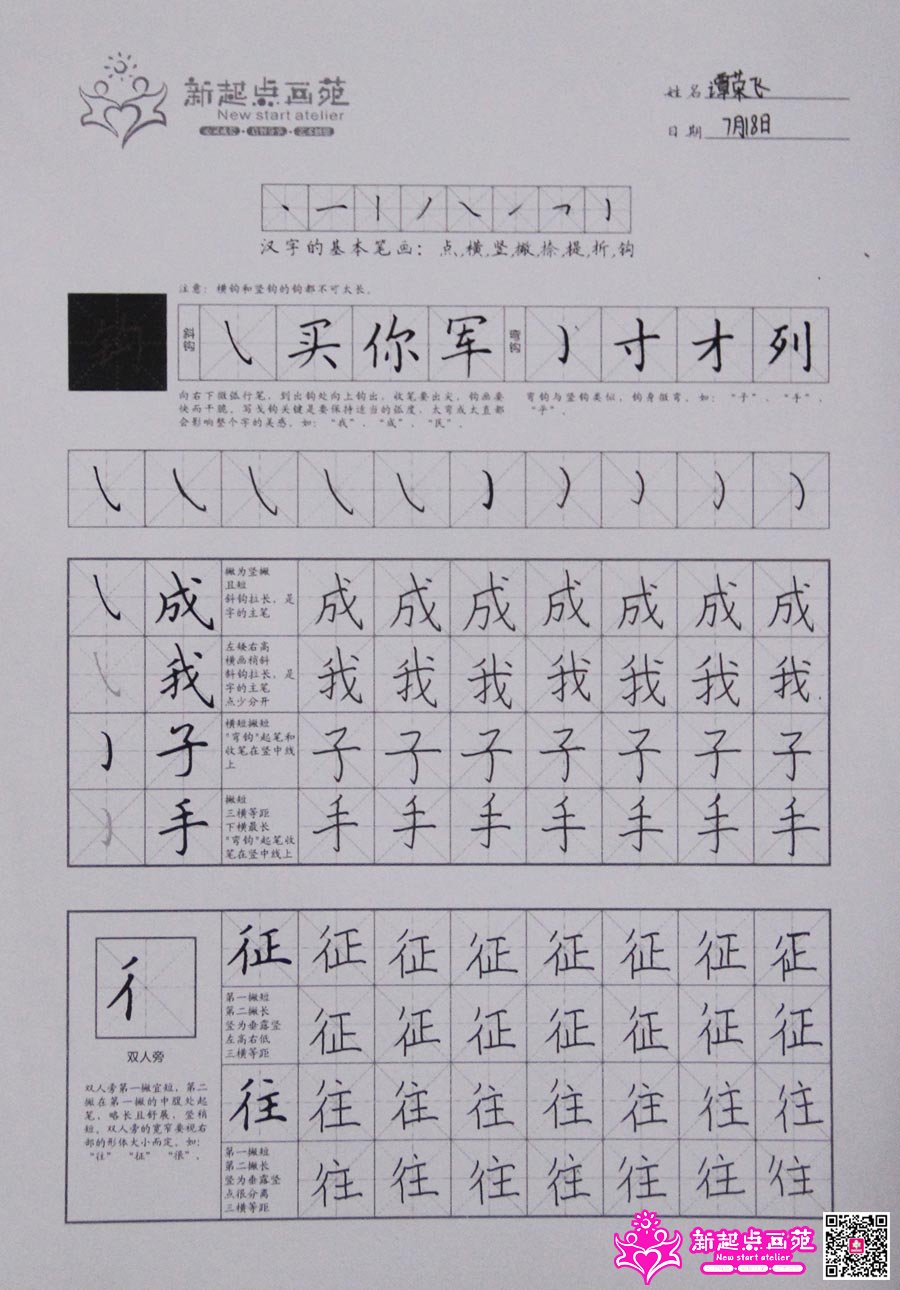 新起点画苑
New start atelier
姓名 谭荣飞
日期 7月18日
汉字的基本笔画：点,横,竖,撇,捺,提,折,钩
注意：横钩和竖钩的钩都不可太长。
钩
斜钩 买 你 军 弯钩 寸 才 列
向右下微弧行笔，到出钩处向上钩出，收笔要出尖，钩画要
快而干脆。写戈钩关键是要保持适当的弧度，太弯或太直都
会影响整个字的美感。如：“我”、“成”、“民”。
弯钩与竖钩类似，钩身微弯。如：“子”、“手”、
“乎”。
成
撇为竖撇
且短
斜钩拉长，是
字的主笔
成 成 成 成 成 成 成
我
左矮右高
横画稍斜
斜钩拉长，是
字的主笔
点少分开
我 我 我 我 我 我 我
子
横短撇短
“弯钩”起笔和
收笔在竖中线
上
子 子 子 子 子 子 子
手
撇短
三横等距
下横最长
“弯钩”起笔收
笔在竖中线上
手 手 手 手 手 手 手
彳
双人旁
双人旁第一撇宜短，第二
撇在第一撇的中腹处起
笔，略长且舒展，竖稍
短。双人旁的宽窄要视右
部的形体大小而定。如：
“往”“征”“很”。
征 征 征 征 征 征 征 征
第一撇短
第二撇长
竖为垂露竖
左高右低
三横等距
征 征 征 征 征 征 征
往 往 往 往 往 往 往 往
第一撇短
第二撇长
竖为垂露竖
点很分离
三横等距
往 往 往 往 往 往 往
新起点画苑
New start atelier